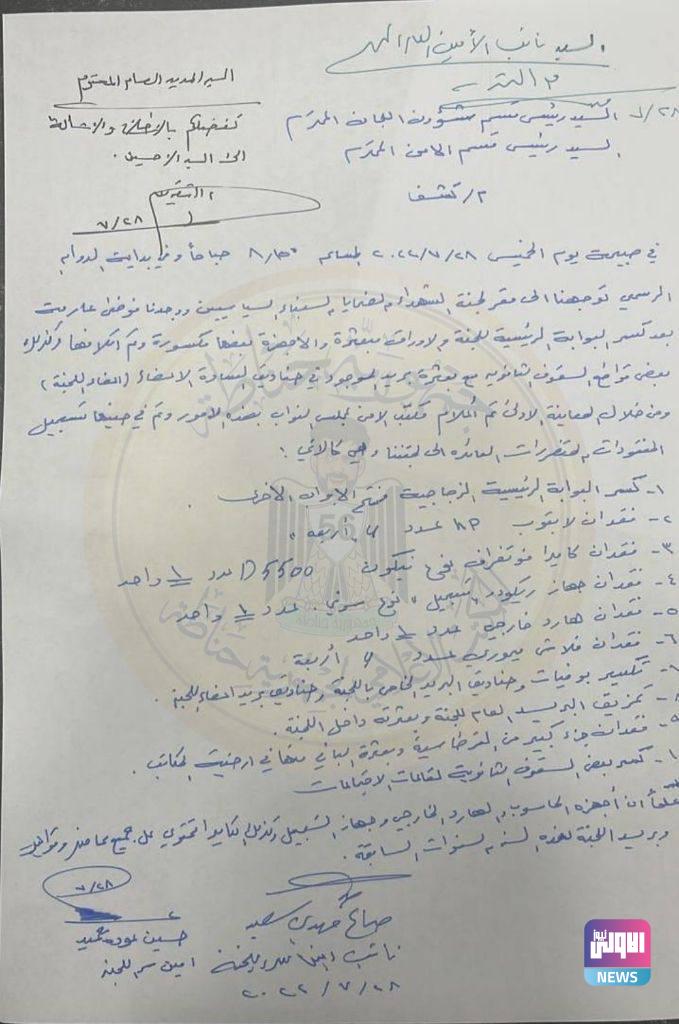 السيد نائب الأمين العام المحترم
السيد المدير العام المحترم
٧/٢٨
السيد رئيس قسم شؤون اللجان المحترم
تفضلكم بالاطلاع والاحالة
السيد رئيس قسم الامن المحترم
الى السيد الامين
م/ كشف
٧/٢٨
في صبيحة يوم الخميس ٢٠٢٢/٧/٢٨ الساعة ٨ صباحاً وفي بداية الدوام
الرسمي توجهنا الى مقر لجنة الشهداء والضحايا والسجناء السياسيين ووجدنا فوضى عارمة
بعد كسر البوابة الرئيسية للجنة والاوراق مبعثرة والاجهزة بعضها مكسورة وتم اتلافها وكذلك
بعض قواطع السقوف الثانوية مع بعثرة بريد الموجود في صناديق السادة الاعضاء (اعضاء اللجنة)
ومن خلال المعاينة الاولى تم اعلام مكتب الامن لمجلس النواب بهذه الامور وتم في حينها تسجيل
المفقودات والتضررات العائدة الى لجنتنا وهي كالاتي :
١- كسر البوابة الرئيسية الزجاجية فتح الابواب الاخرى .
٢- فقدان لابتوب HP عدد ٤ "أربعة"
٣- فقدان كامرا فوتغراف نوع نيكون D5500 عدد ١ واحد
٤- فقدان جهاز ريكودر "تسجيل" نوع سوني . عدد ١ واحد
٥- فقدان هارد خارجي . عدد ١ واحد
٦- فقدان فلاش ميموري عدد ٤ أربعة
٧- تكسير بوفيات وصناديق البريد الخاص باللجنة وصناديق بريد اعضاء اللجنة .
٨- تمزيق البريد العام للجنة وبعثرته داخل اللجنة .
٩- فقدان جزء كبير من القرطاسية وبعثرة الباقي منها في ارضية المكاتب .
١٠- كسر بعض السقوف الثانوية لقاعات الاجتماعات
علماً أن أجهزة الحاسوب والهارد الخارجي وجهاز التسجيل وكذلك الكامرا تحتوي على جميع محاضر
وبريد اللجنة لهذه السنة والسنوات السابقة .
٧/٢٨
صباح مهدي سعيد
حسين عودة
نائب امين سر اللجنة
امين سر اللجنة
٢٠٢٢/٧/٢٨
56
الاولى نيوز
NEWS